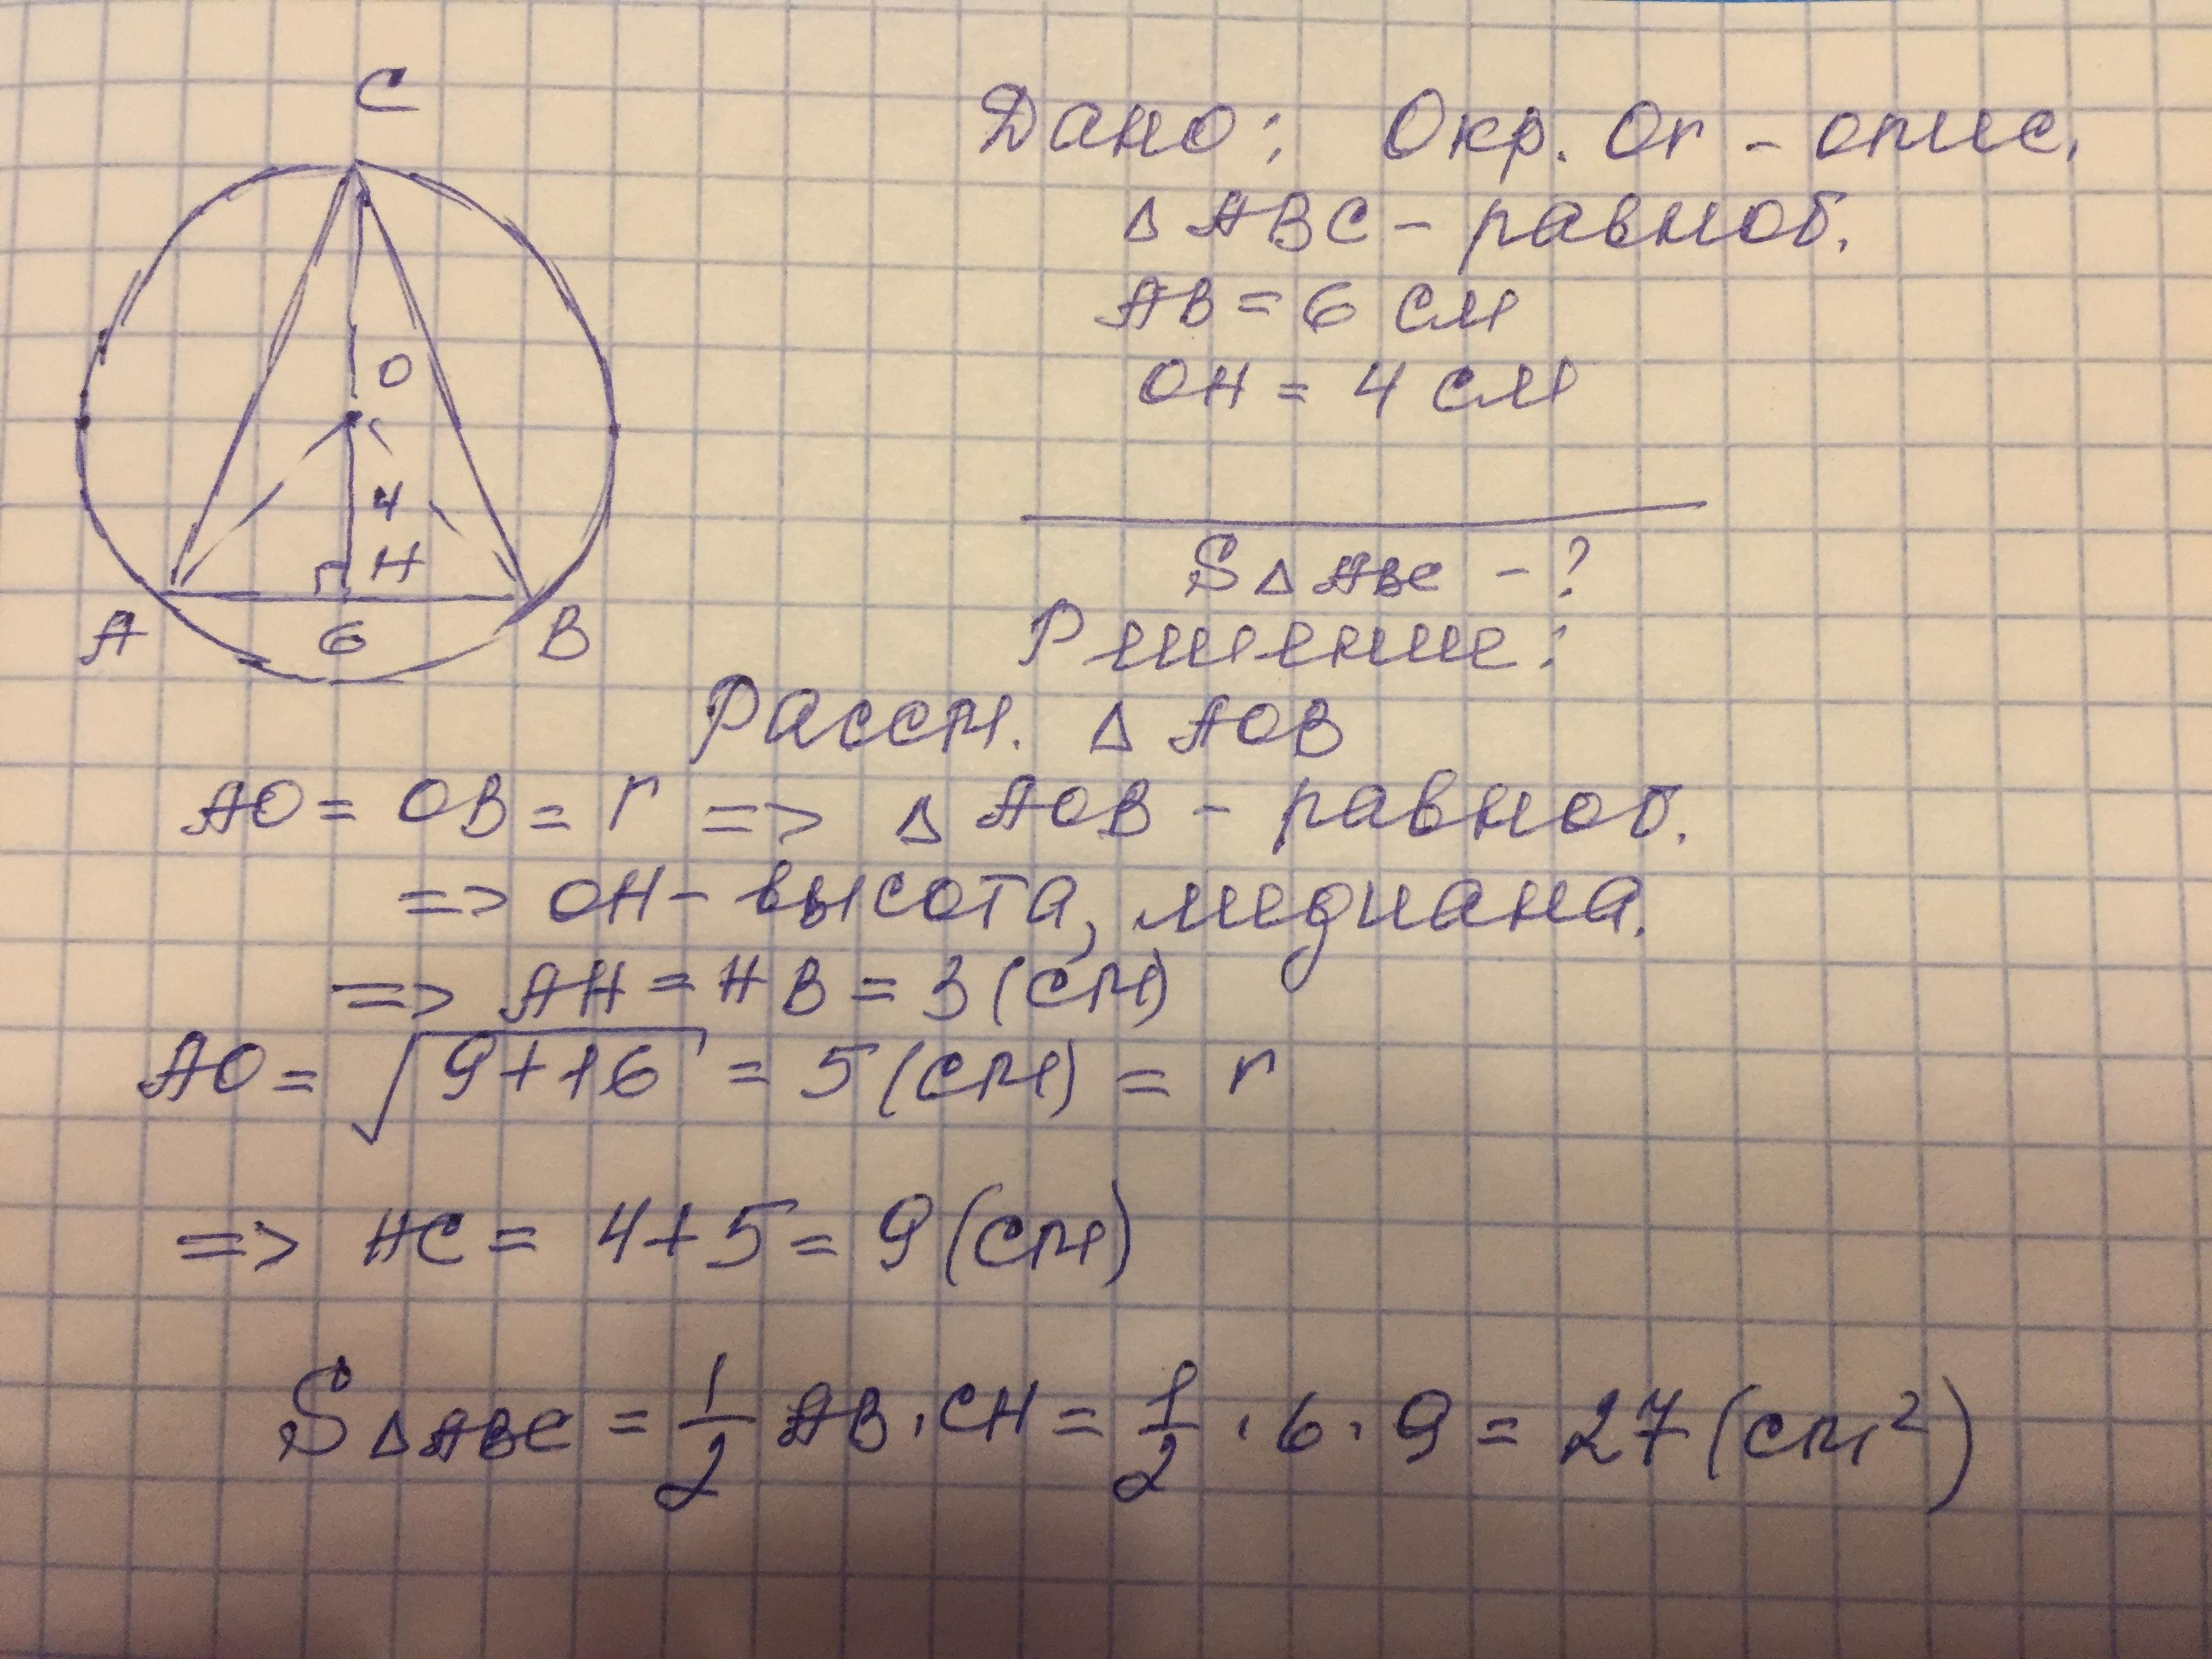 C
O
4
H
A 6 B
Дано: Окр. Or - опис.
Δ ABC - равноб.
AB = 6 см
OH = 4 см
SΔABC - ?
Решение:
Рассм. Δ AOB
AO = OB = r => Δ AOB - равноб.
=> OH - высота, медиана.
=> AH = HB = 3 (см)
AO = √9+16 = 5 (см) = r
=> HC = 4+5 = 9 (см)
SΔABC = 1/2 AB · CH = 1/2 · 6 · 9 = 27 (см²)